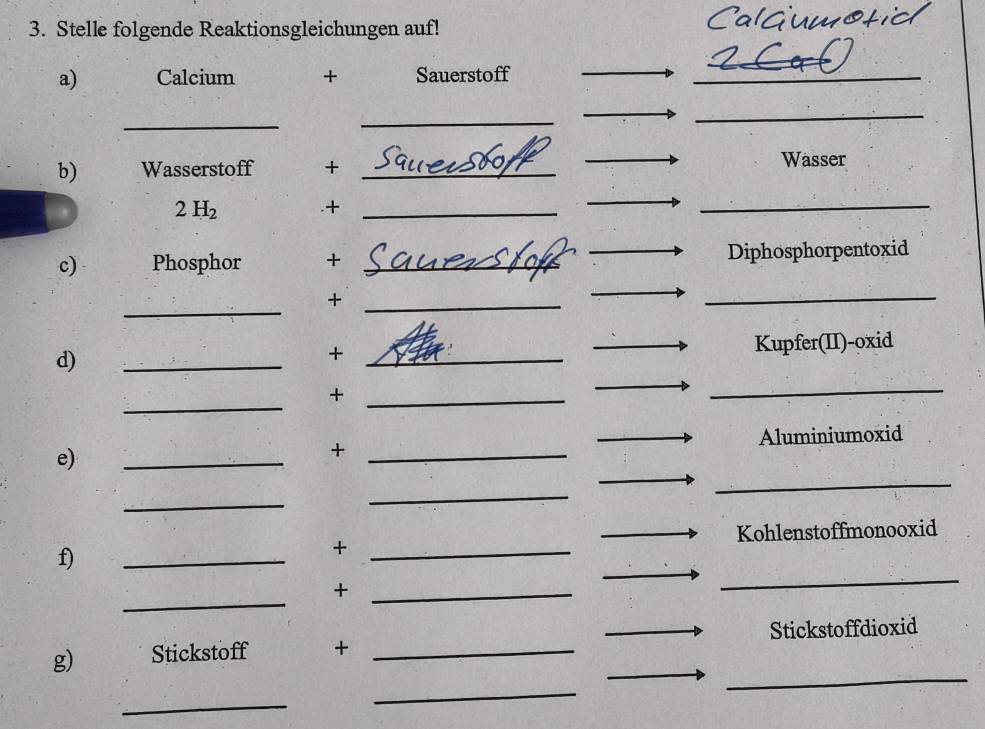 3. Stelle folgende Reaktionsgleichungen auf!
Calciumoxid
a) Calcium + Sauerstoff 2 CaO
b) Wasserstoff + Sauerstoff Wasser
2 H₂ +
c) Phosphor + Sauerstoff Diphosphorpentoxid
+
d) + Kupfer(II)-oxid
+
e) + Aluminiumoxid
f) + Kohlenstoffmonooxid
+
g) Stickstoff + Stickstoffdioxid